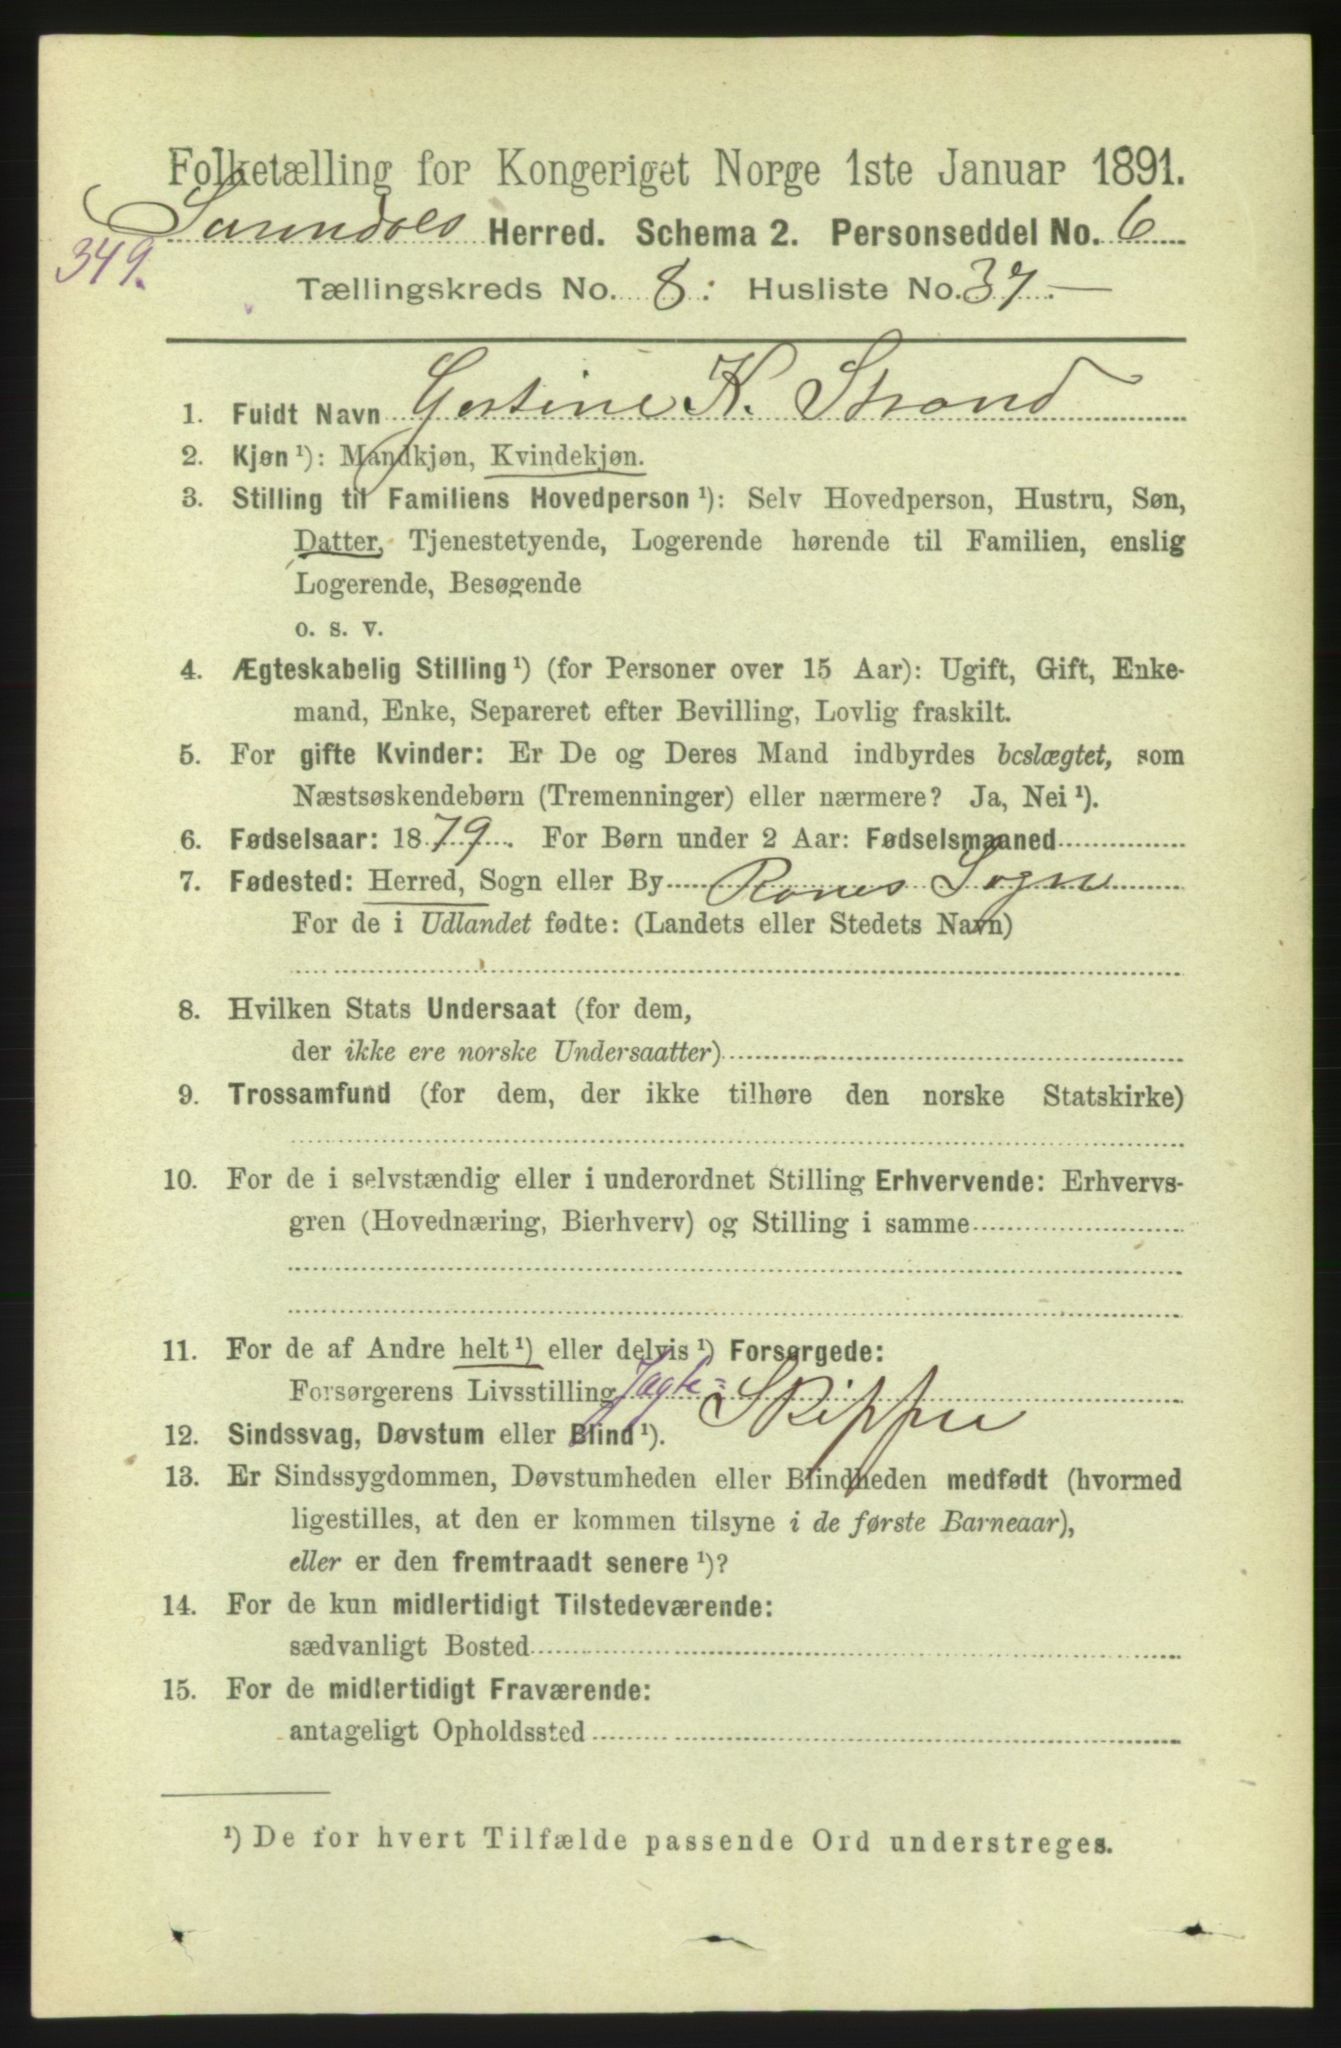 Folketælling for Kongeriget Norge 1ste Januar 1891.
Herred. Schema 2. Personseddel No. 6
349.
Tællingskreds No. 8: Husliste No. 37.
1. Fuldt Navn Gjertine K. Strand
2. Kjøn ¹): Mandkjøn, Kvindekjøn.
3. Stilling til Familiens Hovedperson ¹): Selv Hovedperson, Hustru, Søn,
Datter, Tjenestetyende, Logerende hørende til Familien, enslig
Logerende, Besøgende
o. s. v.
4. Ægteskabelig Stilling ¹) (for Personer over 15 Aar): Ugift, Gift, Enke-
mand, Enke, Separeret efter Bevilling, Lovlig fraskilt.
5. For gifte Kvinder: Er De og Deres Mand indbyrdes beslægtet, som
Næstsøskendebørn (Tremenninger) eller nærmere? Ja, Nei ¹).
6. Fødselsaar: 1879. For Børn under 2 Aar: Fødselsmaaned
7. Fødested: Herred, Sogn eller By Sogn
For de i Udlandet fødte: (Landets eller Stedets Navn)
8. Hvilken Stats Undersaat (for dem,
der ikke ere norske Undersaatter)
9. Trossamfund (for dem, der ikke tilhøre den norske Statskirke)
10. For de i selvstændig eller i underordnet Stilling Erhvervende: Erhvervs-
gren (Hovednæring, Bierhverv) og Stilling i samme
11. For de af Andre helt ¹) eller delvis ¹) Forsørgede:
Forsørgerens Livsstilling Jagte= Skipper
12. Sindssvag, Døvstum eller Blind ¹).
13. Er Sindssygdommen, Døvstumheden eller Blindheden medfødt (hvormed
ligestilles, at den er kommen tilsyne i de første Barneaar),
eller er den fremtraadt senere ¹)?
14. For de kun midlertidigt Tilstedeværende:
sædvanligt Bosted
15. For de midlertidigt Fraværende:
antageligt Opholdssted
¹) De for hvert Tilfælde passende Ord understreges.